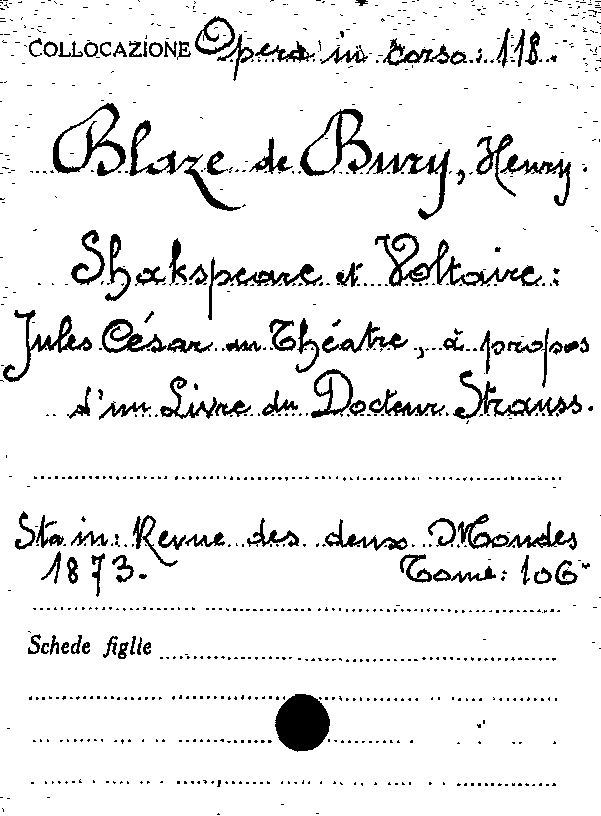 COLLOCAZIONE Opera in corso: 118.
Blaze de Bury, Henry.
Shakspeare et Voltaire:
Jules César au Théatre, à propos
d'un Livre du Docteur Strauss.
Sta in: Revue des deux Mondes
1873. Tome: 106°
Schede figlie